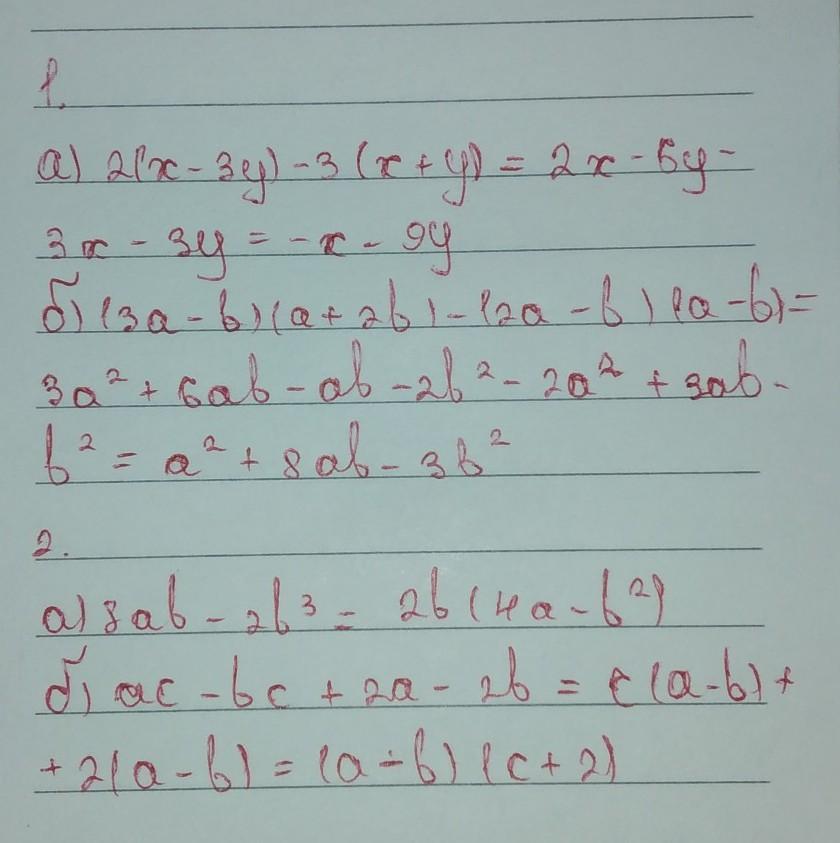 1.
а) 2(x - 3y) - 3(x + y) = 2x - 6y -
3x - 3y = -x - 9y
б) (3a - b)(a + 2b) - (2a - b)(a - b) =
3a² + 6ab - ab - 2b² - 2a² + 3ab -
b² = a² + 8ab - 3b²
2.
а) 8ab - 2b³ = 2b(4a - b²)
б) ac - bc + 2a - 2b = c(a - b) +
+ 2(a - b) = (a - b)(c + 2)